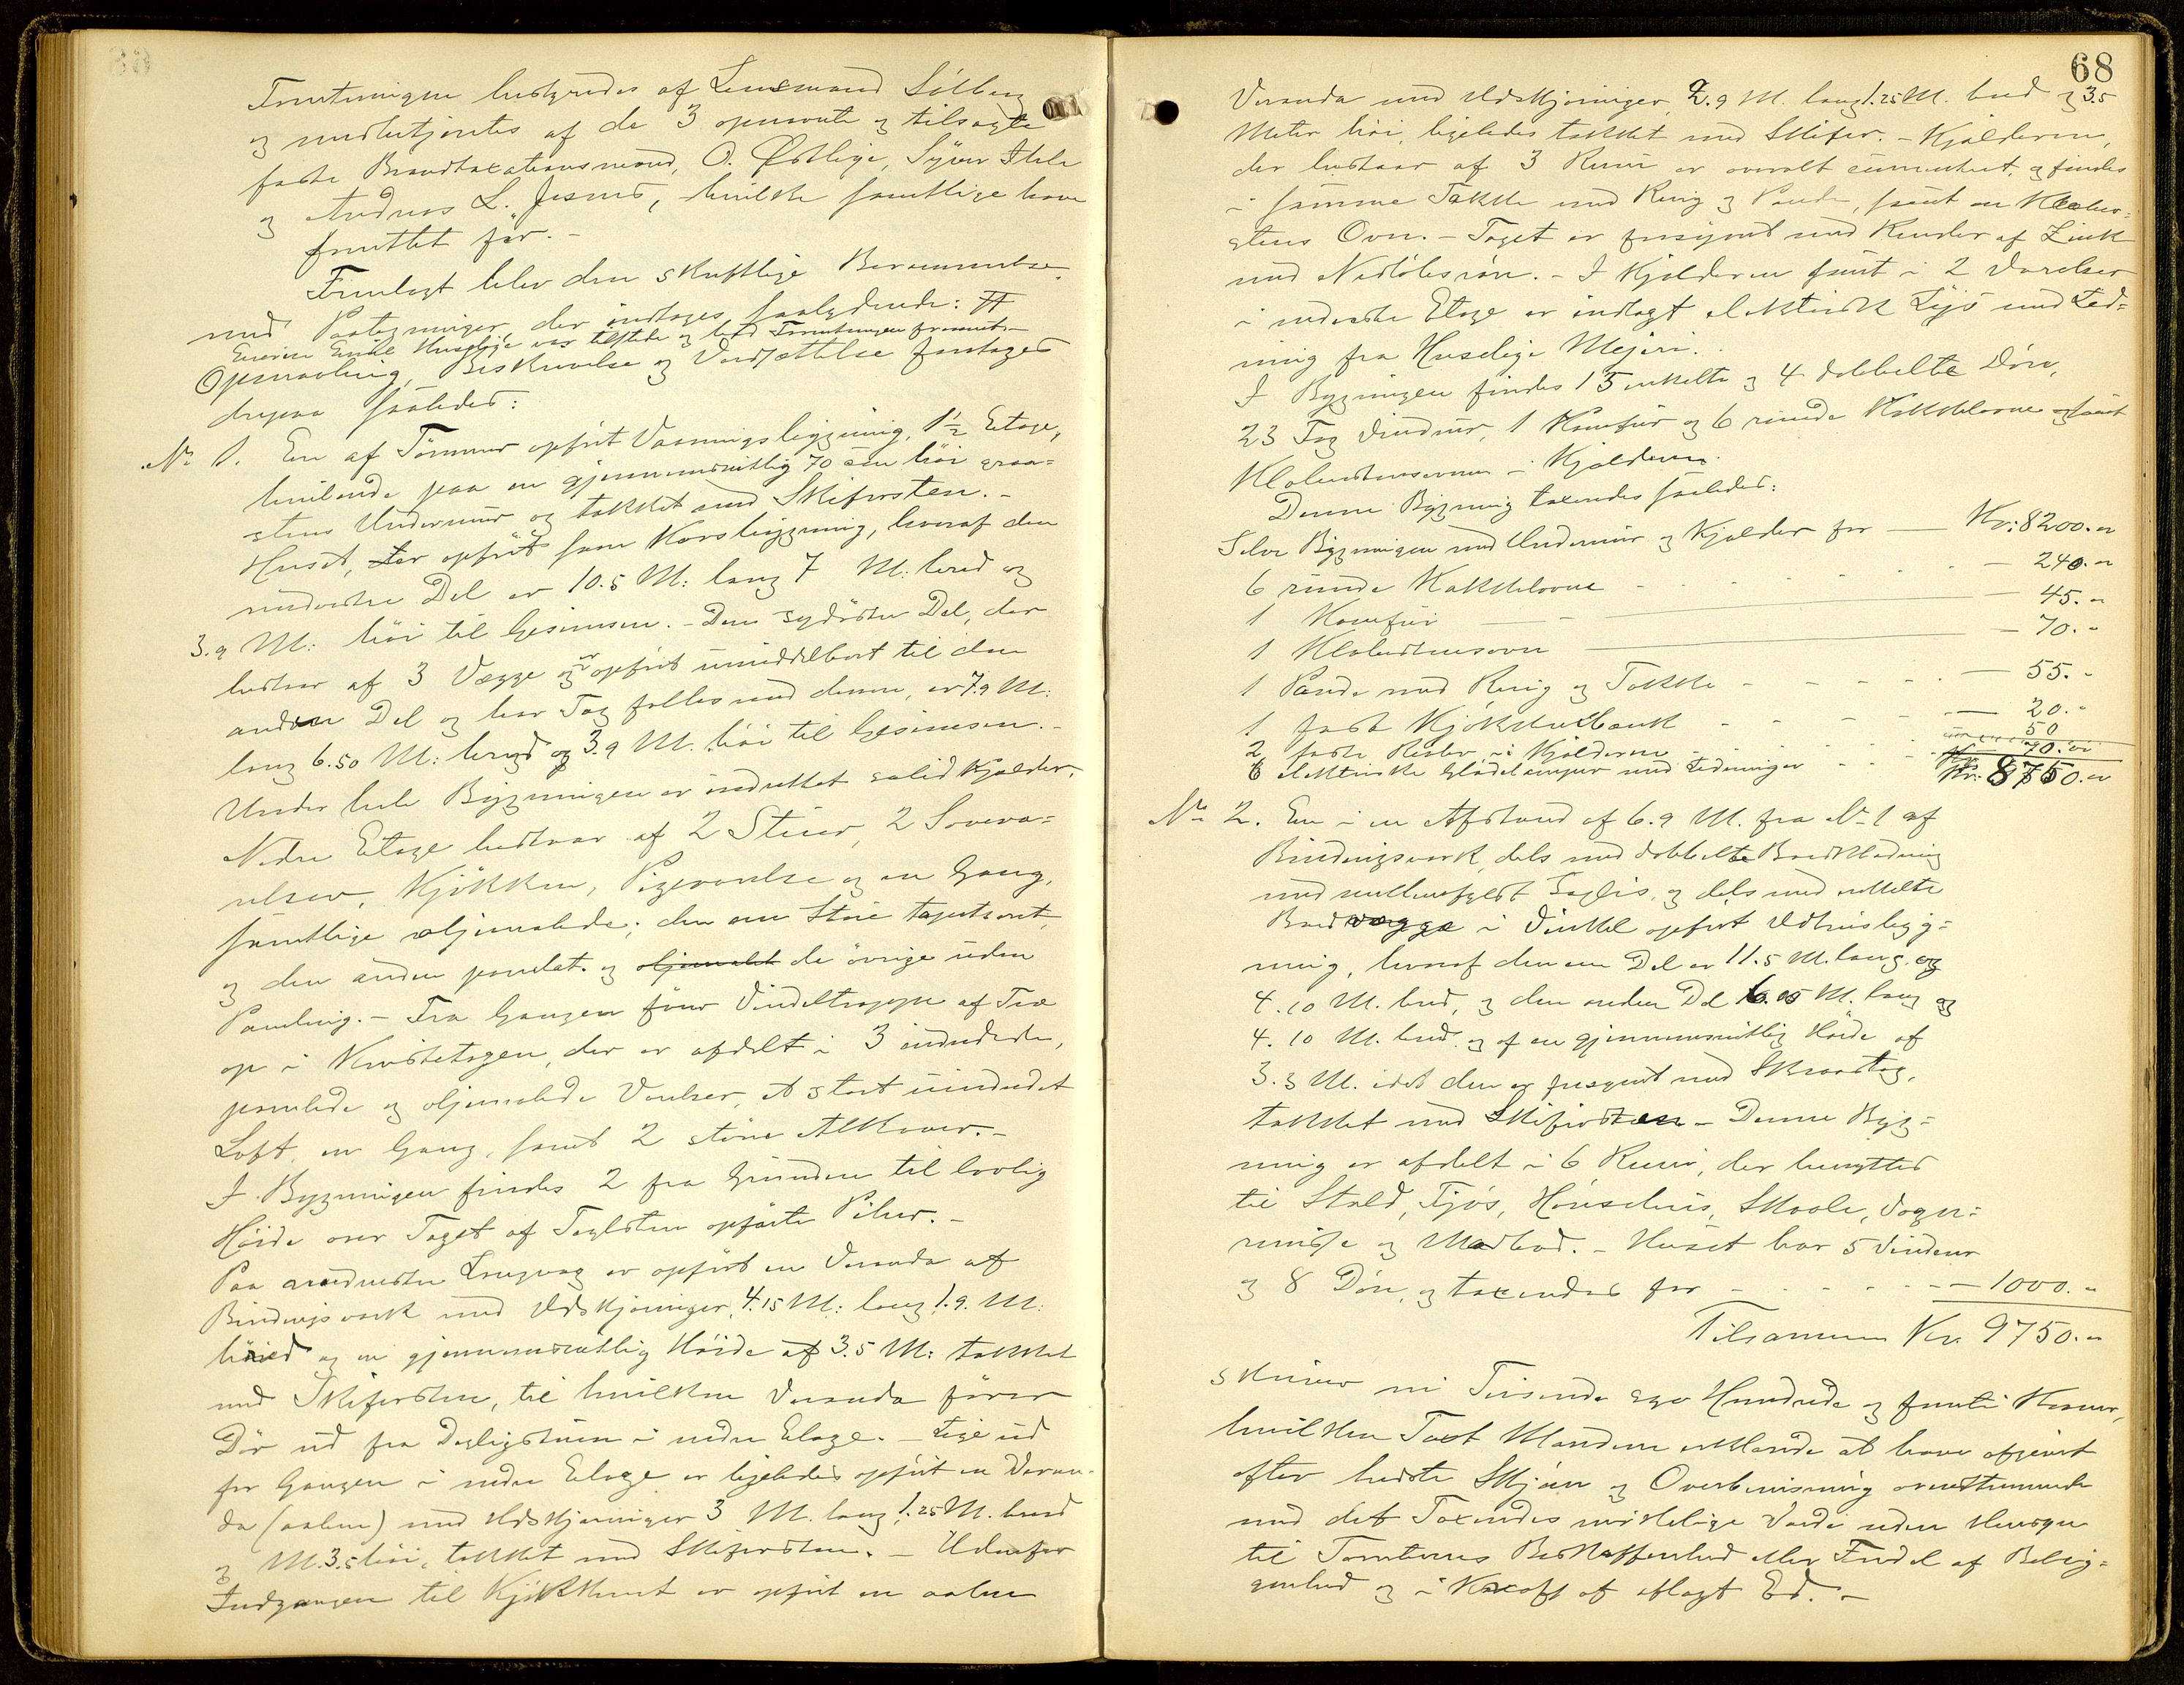 Forretningen bestyredes af Lensmand Solberg
og medbetjentes af de 3 opnævnte og tilsagte
faste Brandtaxationsmænd, O. Østlige, Syver Stele
og Andreas L. Jesnes, hvilke samtlige have
fremtlet før. -
Fremlagt blev den skriftlige Berammelse
med Paategninger, der indtages saalydende: #
Eieren Emil Huseløje var tilstede og lod Forretningen fremme. -
Opmaaling, Beskrivelse og Værdsættelse foretages
derpaa saaledes:
No 1. En af Tømmer opført Vaaningsbygning, 1½ Etage,
hvilende paa en gjennemsnitlig 70 cm høi graa=
stens Undermur og tækket med Skifersten. -
Huset, der opført som Korsbygning, hvoraf den
nederste Del er 10.5 M: lang 7 M: bred og
3.9 M: høi til Gesimsen. - Den sydøstre Del, der
bestaar af 3 Vægge og er opført umiddelbart til den
anden Del og har Tag fælles med denne, er 7.9 M:
lang 6.50 M: bred og 3.9 M. høi til Gesimsen. -
Under hele Bygningen er indrettet solid Kjælder.
Nedre Etage bestaar af 2 Stuer, 2 Soveva=
relser, Kjøkken, Pigeværelse og en Gang,
samtlige oljemalede; den ene Stue tapetseret,
og den anden panelat. og oljemalet de øvrige uden
Paneling. - Fra Gangen fører Vindeltrappe af Træ
op i Kvistetagen, der er afdelt i 3 indredede,
panelede og oljemalede Værelser, et stort uindredet
Loft, en Gang, samt 2 større Alkover. -
I Bygningen findes 2 fra Grunden til lovlig
Høide over Taget af Teglsten opførte Piber. -
Paa nordvestre Langvæg er opført en Veranda af
Bindingsverk med Udskjæringer, 4.15 M: lang 1.9. M:
bred og en gjennemsnitlig Høide af 3.5 M: tækket
med Skifersten, til hvilken Veranda fører
Dør ud fra Dagligstuen i nedre Etage. - Lige ud
for Gangen i nedre Etage er ligeledes opført en Veran-
da (aaben) med Udskjæringer 3 M. lang 1.25 M. bred
og M. 3.5 høi, tækket med Skifersten. - Udenfor
Indgangen til Kjøkkenet er opført en aaben
68
Veranda med Udskjæringer, 2.9 M. lang 1.25 M. bred og 3.5
Meter høi, ligeledes tækket med Skifer. - Kjælderen,
der bestaar af 3 Rum er overalt cementeret, og findes
i samme Takke med Ring og Pande, samt en Kleber=
stens Ovn. - Taget er forsynet med Render af Zink
med Nedløbsrør. - I Kjælderen samt i 2 Værelser
i nederste Etage er indlagt elektrisk Lys med Led=
ning fra Huseløje Mejeri.
I Bygningen findes 15 enkelte og 4 dobbelte Døre,
23 Fag Vinduer, 1 Komfur og 6 runde Kakkelovne og samt
Klebestensovnen i Kjælderen.
Denne Bygning taxeredes saaledes:
Selve Bygningen med Undermur og Kjælder for — Kr: 8200. -
6 runde Kakkelovne — 240. -
1 Komfur — 45. -
1 Klebestensovn — 70. -
1 Pande med Ring og Takke — 55. -
1 fast Kjøkkenbænk — 20. -
2 faste Reoler i Kjælderen — 50
6 elektriske Glødelamper med Ledninger — 70. -
Kr: 8750. -
No 2. En i en Afstand af 6.9 M. fra No 1 af
Bindingsverk, dels med dobbelte Bordklædning
med mellemfyldt Sagflis, og dels med enkelte
Bordvægge i Vinkel opført Udhusbyg=
ning, hvoraf den ene Del er 11.5 M. lang, og
4.10 M. bred, og den anden Del 6.05 M. lang og
4.10 M. bred. og af en gjennemsnitlig Høide af
3.3 M. idet den er forsynet med Skraatag,
tækket med Skifersten. - Denne Byg=
ning er afdelt i 6 Rum, der benyttes
til Stald, Fjøs, Hønsehus, Skaale, Vogn=
remisse og Madbod. - Huset har 5 Vinduer
og 8 Døre, og taxeredes for — 1000. -
Tilsammen Kr. 9750. -
skriver ni Tusende syv Hundrede og femti Kroner,
hvilken Taxt Mændene erklærede at have afgivet
efter bedste Skjøn og Overbevisning overensstemmende
med det Taxeredes virkelige Værdi uden Hensyn
til Tomternes Beskaffenhed eller Fordel af Belig=
genhed og i Kraft af aflagt Ed. -